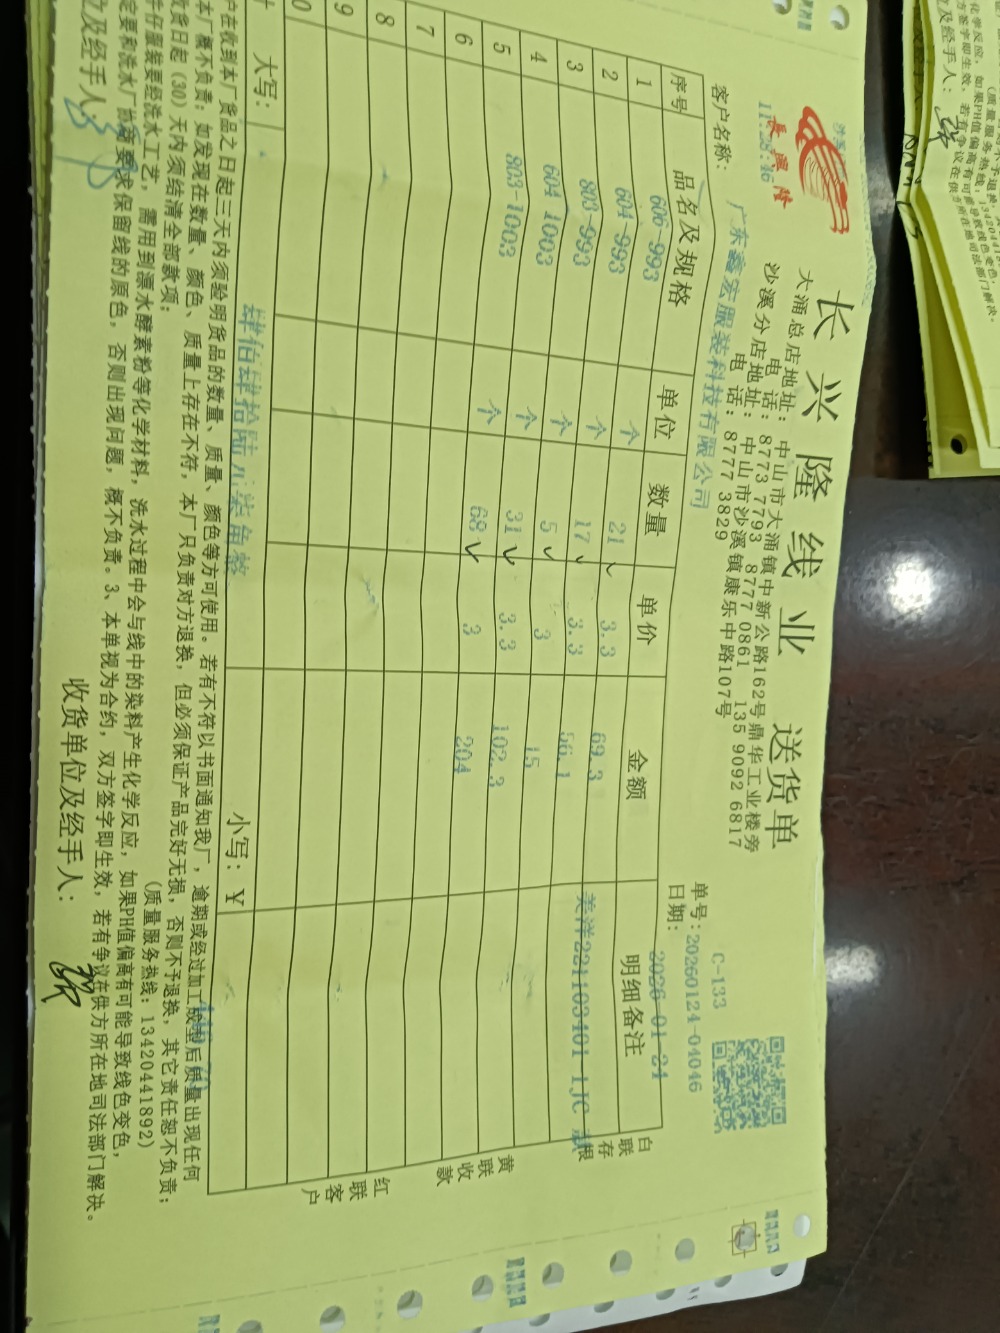 長興隆
11:28:46
长兴隆线业 送货单
大涌总店地址：中山市大涌镇中新公路162号鼎华工业楼旁
电 话：8773 7793 8777 0861 135 9092 6817
沙溪分店地址：中山市沙溪镇康乐中路107号
电 话：8777 3829
C-133
单号：20260124-04046
客户名称：广东鑫宏服装科技有限公司
日期：2026-01-24
序号 品名及规格 单位 数量 单价 金额 明细备注
1 606-993 个 21 3.3 69.3
2 604-993 个 17 3.3 56.1 美洋221103401 1JC
3 803-993 个 5 3 15
4 604 1003 个 31 3.3 102.3
5 803-1003 个 68 3 204
6
7
8
9
大写：肆佰肆拾陆元柒角整 小写：￥
户在收到本厂货品之日起三天内须验明货品的数量、质量、颜色等方可使用。若有不符以书面通知我厂，逾期或经过加工成型后质量出现任何
本厂概不负责；如发现在数量、颜色、质量上存在不符，本厂只负责对方退换，但必须保证产品完好无损，否则不予退换，其它责任恕不负责；
收货日起（30）天内须给清全部款项；
（质量服务热线：13420441892）
牛仔服装要经洗水工艺，需用到漂水酵素粉等化学材料，洗水过程中会与线中的染料产生化学反应，如果PH值偏高有可能导致线色变色，
定要和洗水厂协商要求保留线的原色，否则出现问题，概不负责。3、本单视为合约，双方签字即生效，若有争议在供方所在地司法部门解决。
位及经手人：
收货单位及经手人：
白联存根
黄联收款
红联客户